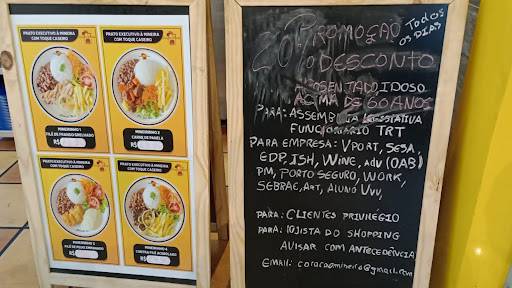 PRATO EXECUTIVO À MINEIRA
COM TOQUE CASEIRO
MINEIRINHO 1
FILÉ DE FRANGO GRELHADO
R$
PRATO EXECUTIVO À MINEIRA
COM TOQUE CASEIRO
MINEIRINHO 2
CARNE DE PANELA
R$
PRATO EXECUTIVO À MINEIRA
COM TOQUE CASEIRO
MINEIRINHO 3
R$
PRATO EXECUTIVO À MINEIRA
COM TOQUE CASEIRO
MINEIRINHO 4
R$
PROMOÇÃO TODOS
OS DIAS
20% DESCONTO
APOSENTADO IDOSO
ACIMA DE 60 ANOS
PARA: ASSEMBLEIA LEGISLATIVA
FUNCIONÁRIO TRT
PARA EMPRESA: VPORT, SESA,
EDP, ISH, WINE, ADV (OAB)
PM, PORTO SEGURO, WORK,
SEBRAE, ALUNO UVV,
PARA: CLIENTES PRIVILÉGIO
PARA: LOJISTA DO SHOPPING
AVISAR COM ANTECEDÊNCIA
EMAIL: coracaomineiro@gmail.com